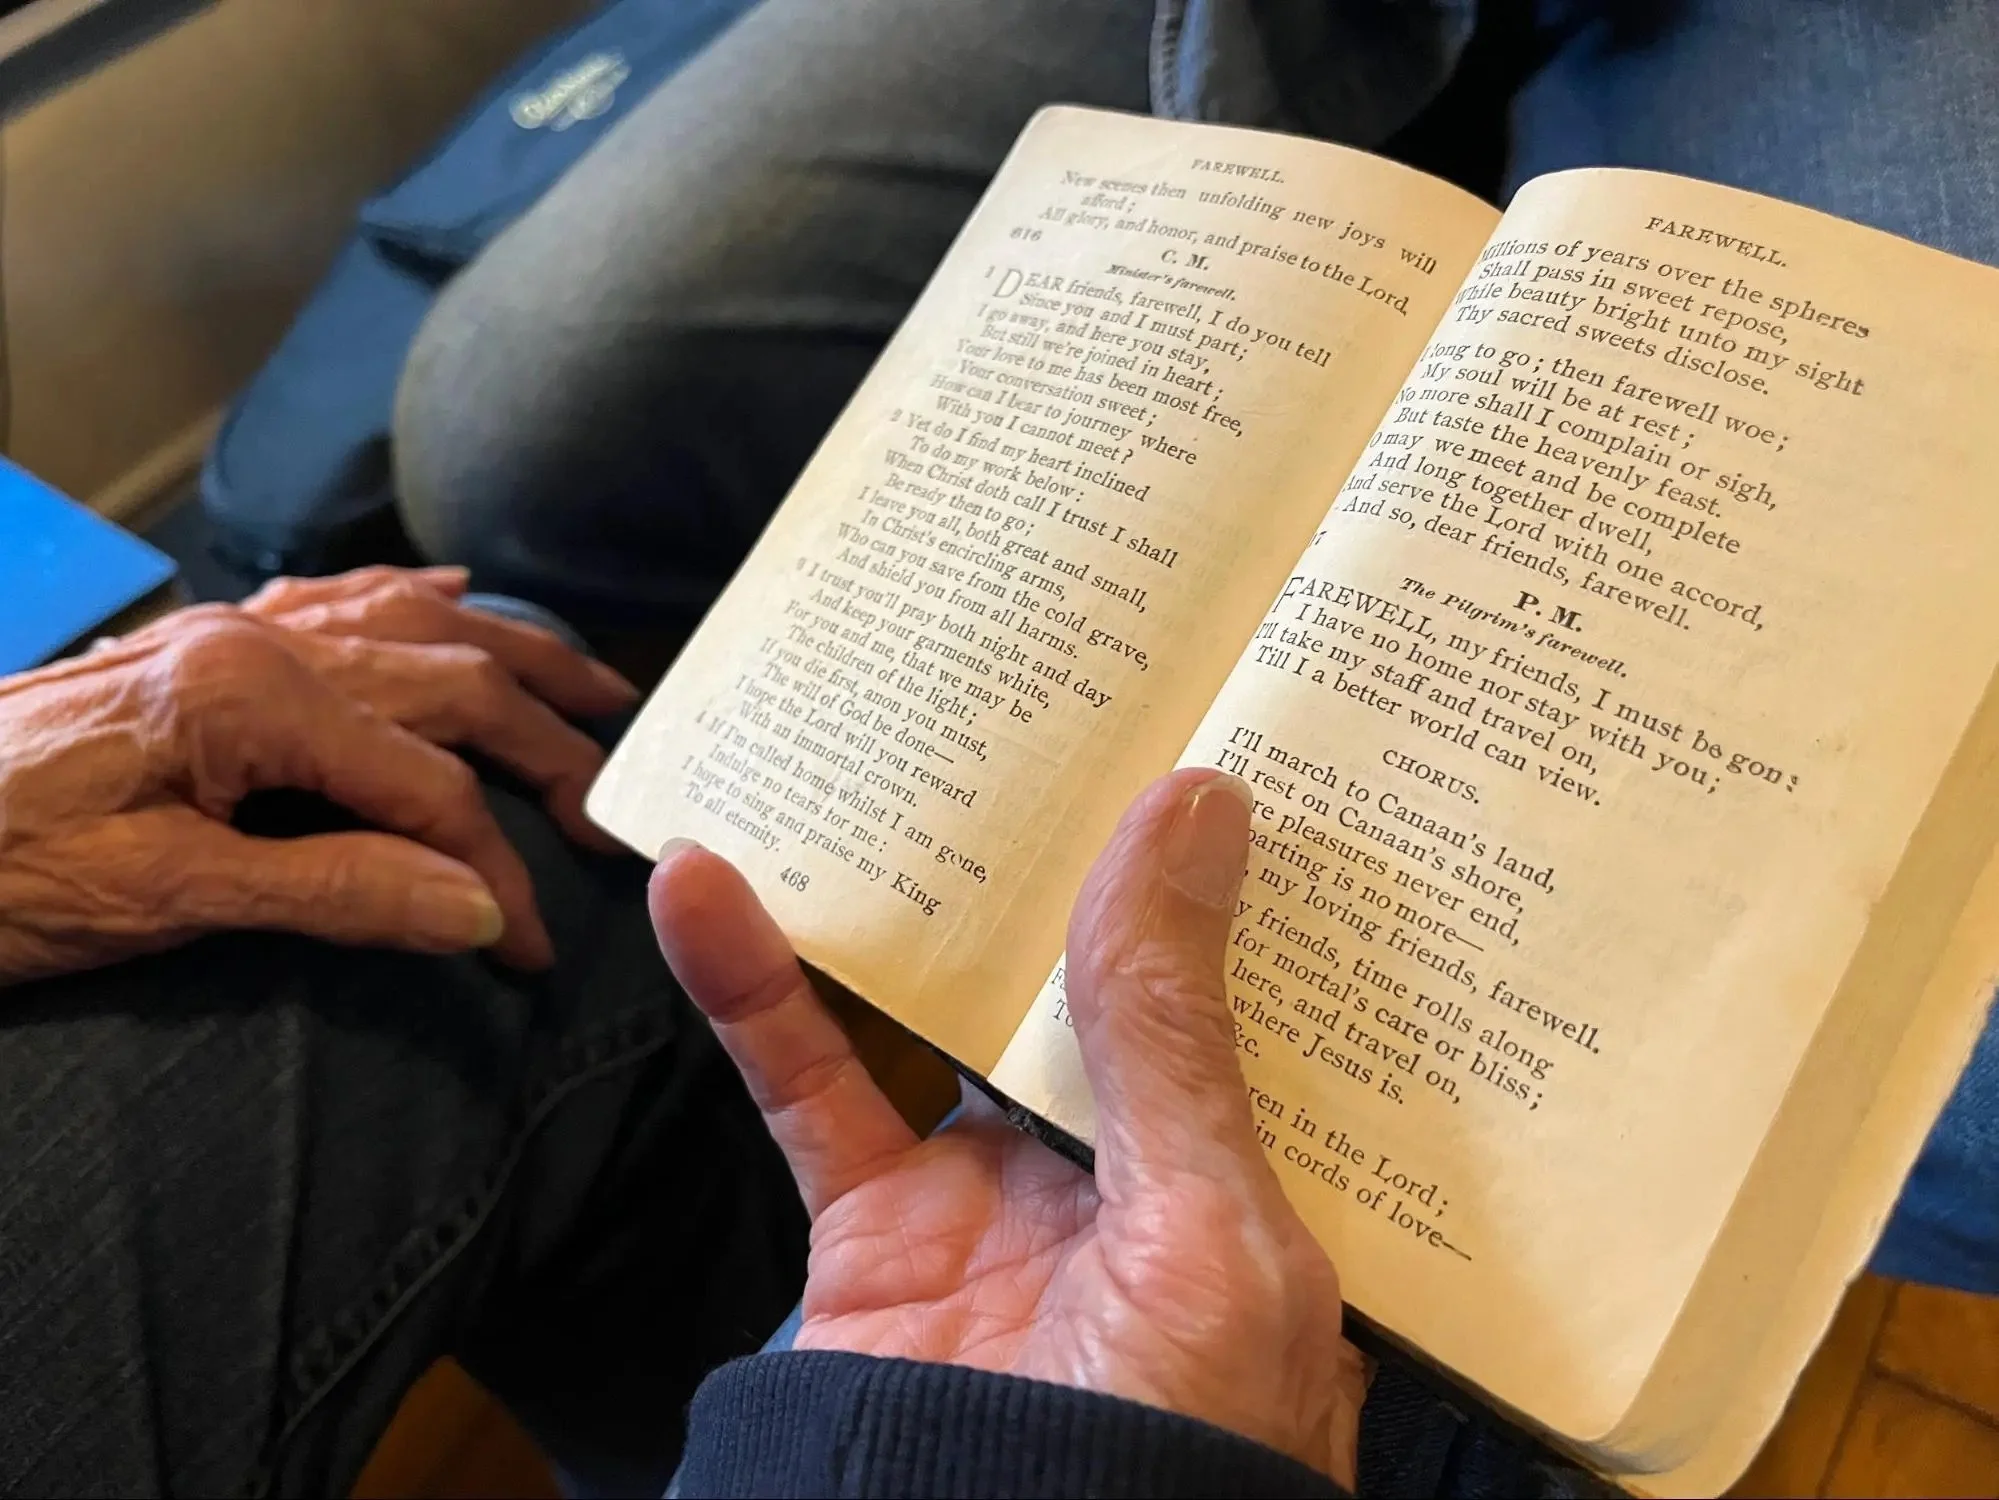 FAREWELL.
New scenes then unfolding new joys will
afford;
All glory, and honor, and praise to the Lord,
616
C. M.
Minister's farewell.
1 DEAR friends, farewell, I do you tell
Since you and I must part;
I go away, and here you stay,
But still we're joined in heart;
Your love to me has been most free,
Your conversation sweet;
How can I bear to journey where
With you I cannot meet?
2 Yet do I find my heart inclined
To do my work below:
When Christ doth call I trust I shall
Be ready then to go;
I leave you all, both great and small,
In Christ's encircling arms,
Who can you save from the cold grave,
And shield you from all harms.
3 I trust you'll pray both night and day
And keep your garments white,
For you and me, that we may be
The children of the light;
If you die first, anon you must,
The will of God be done—
I hope the Lord will you reward
With an immortal crown.
4 If I'm called home whilst I am gone,
Indulge no tears for me:
I hope to sing and praise my King
To all eternity.
468
FAREWELL.
Millions of years over the spheres
Shall pass in sweet repose,
While beauty bright unto my sight
Thy sacred sweets disclose.
I long to go; then farewell woe;
My soul will be at rest;
No more shall I complain or sigh,
But taste the heavenly feast.
O may we meet and be complete
And long together dwell,
And serve the Lord with one accord,
And so, dear friends, farewell.
7
P. M.
The Pilgrim's farewell.
FAREWELL, my friends, I must be gone;
I have no home nor stay with you;
I'll take my staff and travel on,
Till I a better world can view.
CHORUS.
I'll march to Canaan's land,
I'll rest on Canaan's shore,
pleasures never end,
parting is no more—
my loving friends, farewell.
friends, time rolls along
for mortal's care or bliss;
here, and travel on,
where Jesus is.
&c.
in the Lord;
in cords of love—